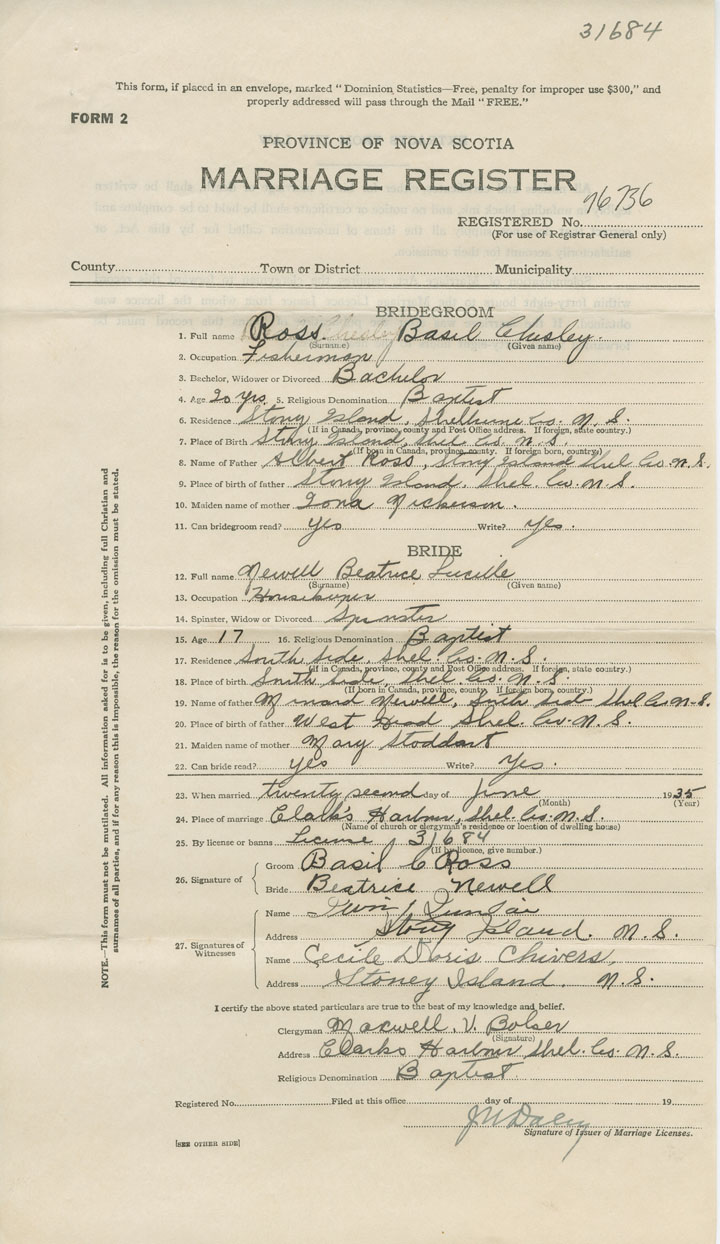 31684
This form, if placed in an envelope, marked "Dominion Statistics—Free, penalty for improper use $300," and
properly addressed will pass through the Mail "FREE."
FORM 2
PROVINCE OF NOVA SCOTIA
MARRIAGE REGISTER
REGISTERED No. 76736
(For use of Registrar General only)
County Town or District Municipality
BRIDEGROOM
1. Full name Ross Basil Chesley
(Surname) (Given name)
2. Occupation Fisherman
3. Bachelor, Widower or Divorced Bachelor
4. Age 20 yrs. 5. Religious Denomination Baptist
6. Residence Stony Island, Shelburne Co. N.S.
(If in Canada, province, county and Post Office address. If foreign, state country.)
7. Place of Birth Stony Island, Shel. Co. N.S.
(If born in Canada, province, county. If foreign born, country.)
8. Name of Father Albert Ross, Stony Island Shel Co. N.S.
9. Place of birth of father Stony Island, Shel. Co. N.S.
10. Maiden name of mother Iona Nickerson.
11. Can bridegroom read? yes Write? Yes.
BRIDE
12. Full name Newell Beatrice Lucille
(Surname) (Given name)
13. Occupation Housekeeper
14. Spinster, Widow or Divorced Spinster
15. Age 17 16. Religious Denomination Baptist
17. Residence South Side, Shel. Co. N.S.
(If in Canada, province, county and Post Office address. If foreign, state country.)
18. Place of birth South Side, Shel. Co. N.S.
(If born in Canada, province, county. If foreign born, country.)
19. Name of father Newell, South Side Shel Co. N.S.
20. Place of birth of father West Head Shel. Co. N.S.
21. Maiden name of mother Mary Stoddart
22. Can bride read? yes Write? Yes.
23. When married twenty second day of June 1935
(Month) (Year)
24. Place of marriage Clark's Harbour, Shel. Co. N.S.
(Name of church or clergyman's residence or location of dwelling house)
25. By license or banns License, 31684
(If by licence, give number.)
26. Signature of Groom Basil C Ross
Bride Beatrice Newell
27. Signatures of Witnesses
Name
Address Stony Island. N.S.
Name Cecile Doris Chivers,
Address Stoney Island. N.S.
I certify the above stated particulars are true to the best of my knowledge and belief.
Clergyman Maxwell. V. Bolser
(Signature)
Address Clarks Harbour Shel. Co. N.S.
Religious Denomination Baptist
Registered No. Filed at this office day of 19
Signature of Issuer of Marriage Licenses.
[SEE OTHER SIDE]
NOTE.—This form must not be mutilated. All information asked for is to be given, including full Christian and
surnames of all parties, and if for any reason this is impossible, the reason for the omission must be stated.